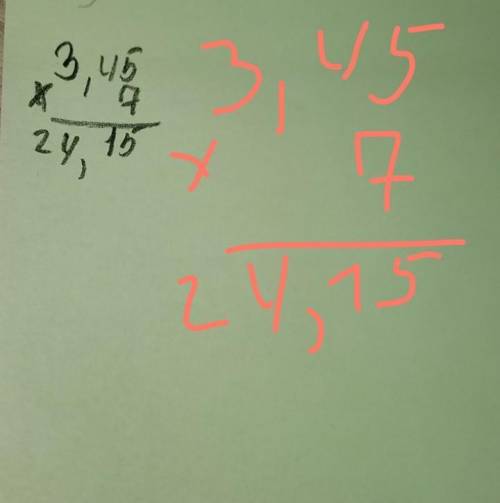 3,45
x 7
24,15
3,45
x 7
24,15